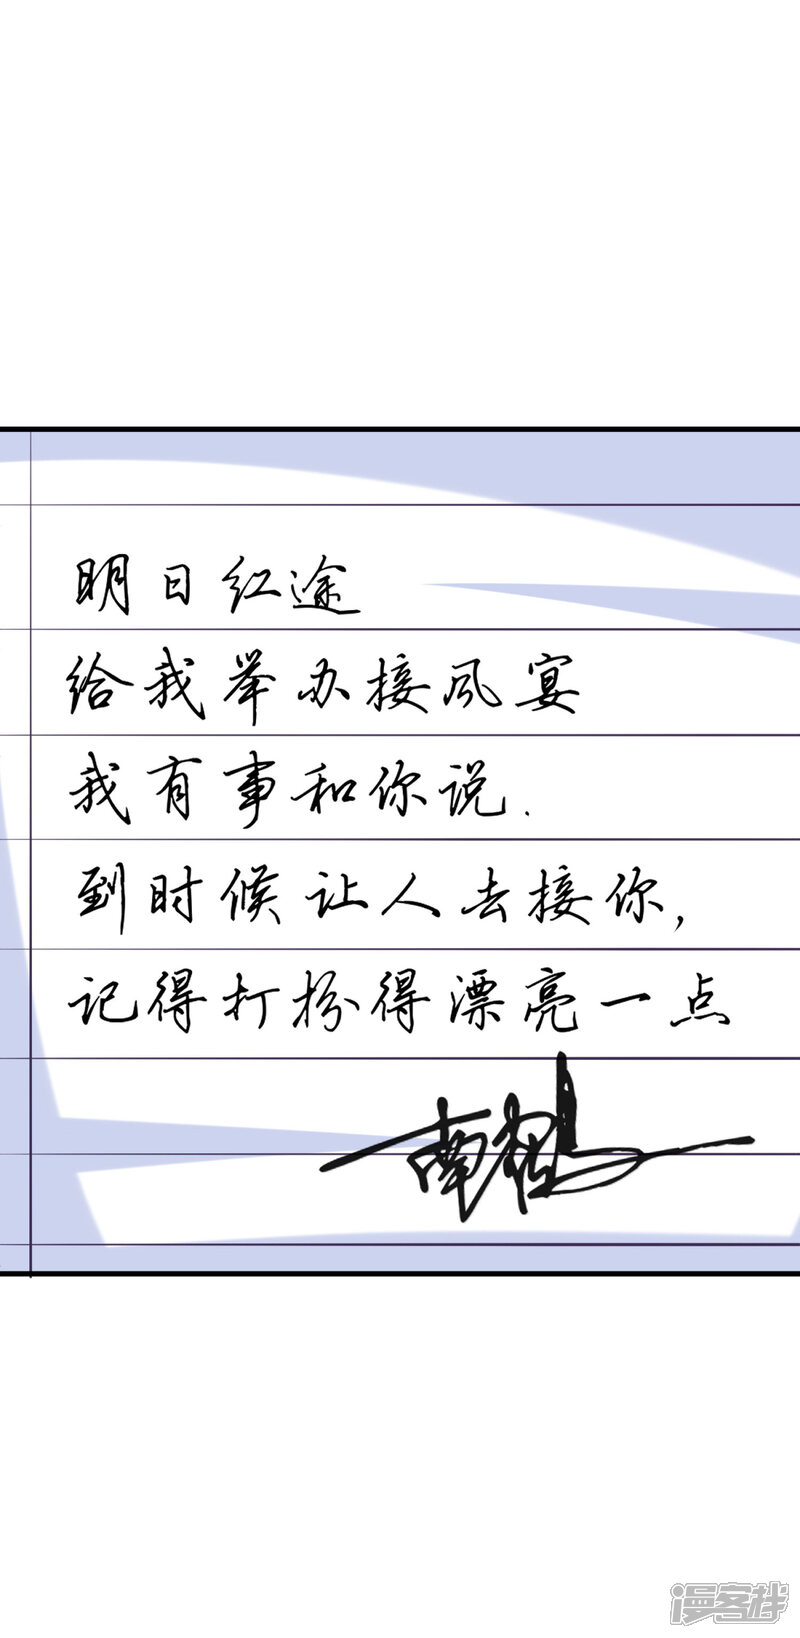 明日红途
给我举办接风宴
我有事和你说.
到时候让人去接你,
记得打扮得漂亮一点
漫客栈